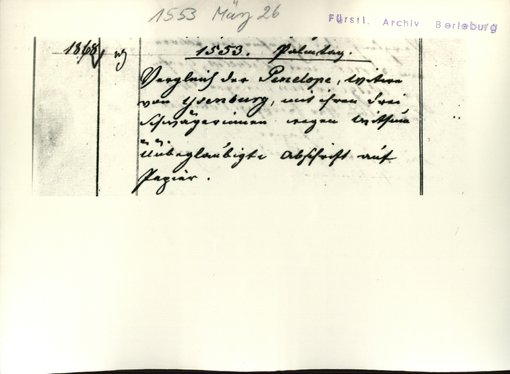 1553 März 26
Fürstl. Archiv Berleburg
1868
1553. Palmtag.
Vergleich der Penelope, Witwe
von Ysenburg, mit ihren drei
Schwägerinnen wegen Witthum
Unbeglaubigte Abschrift auf
Papier.